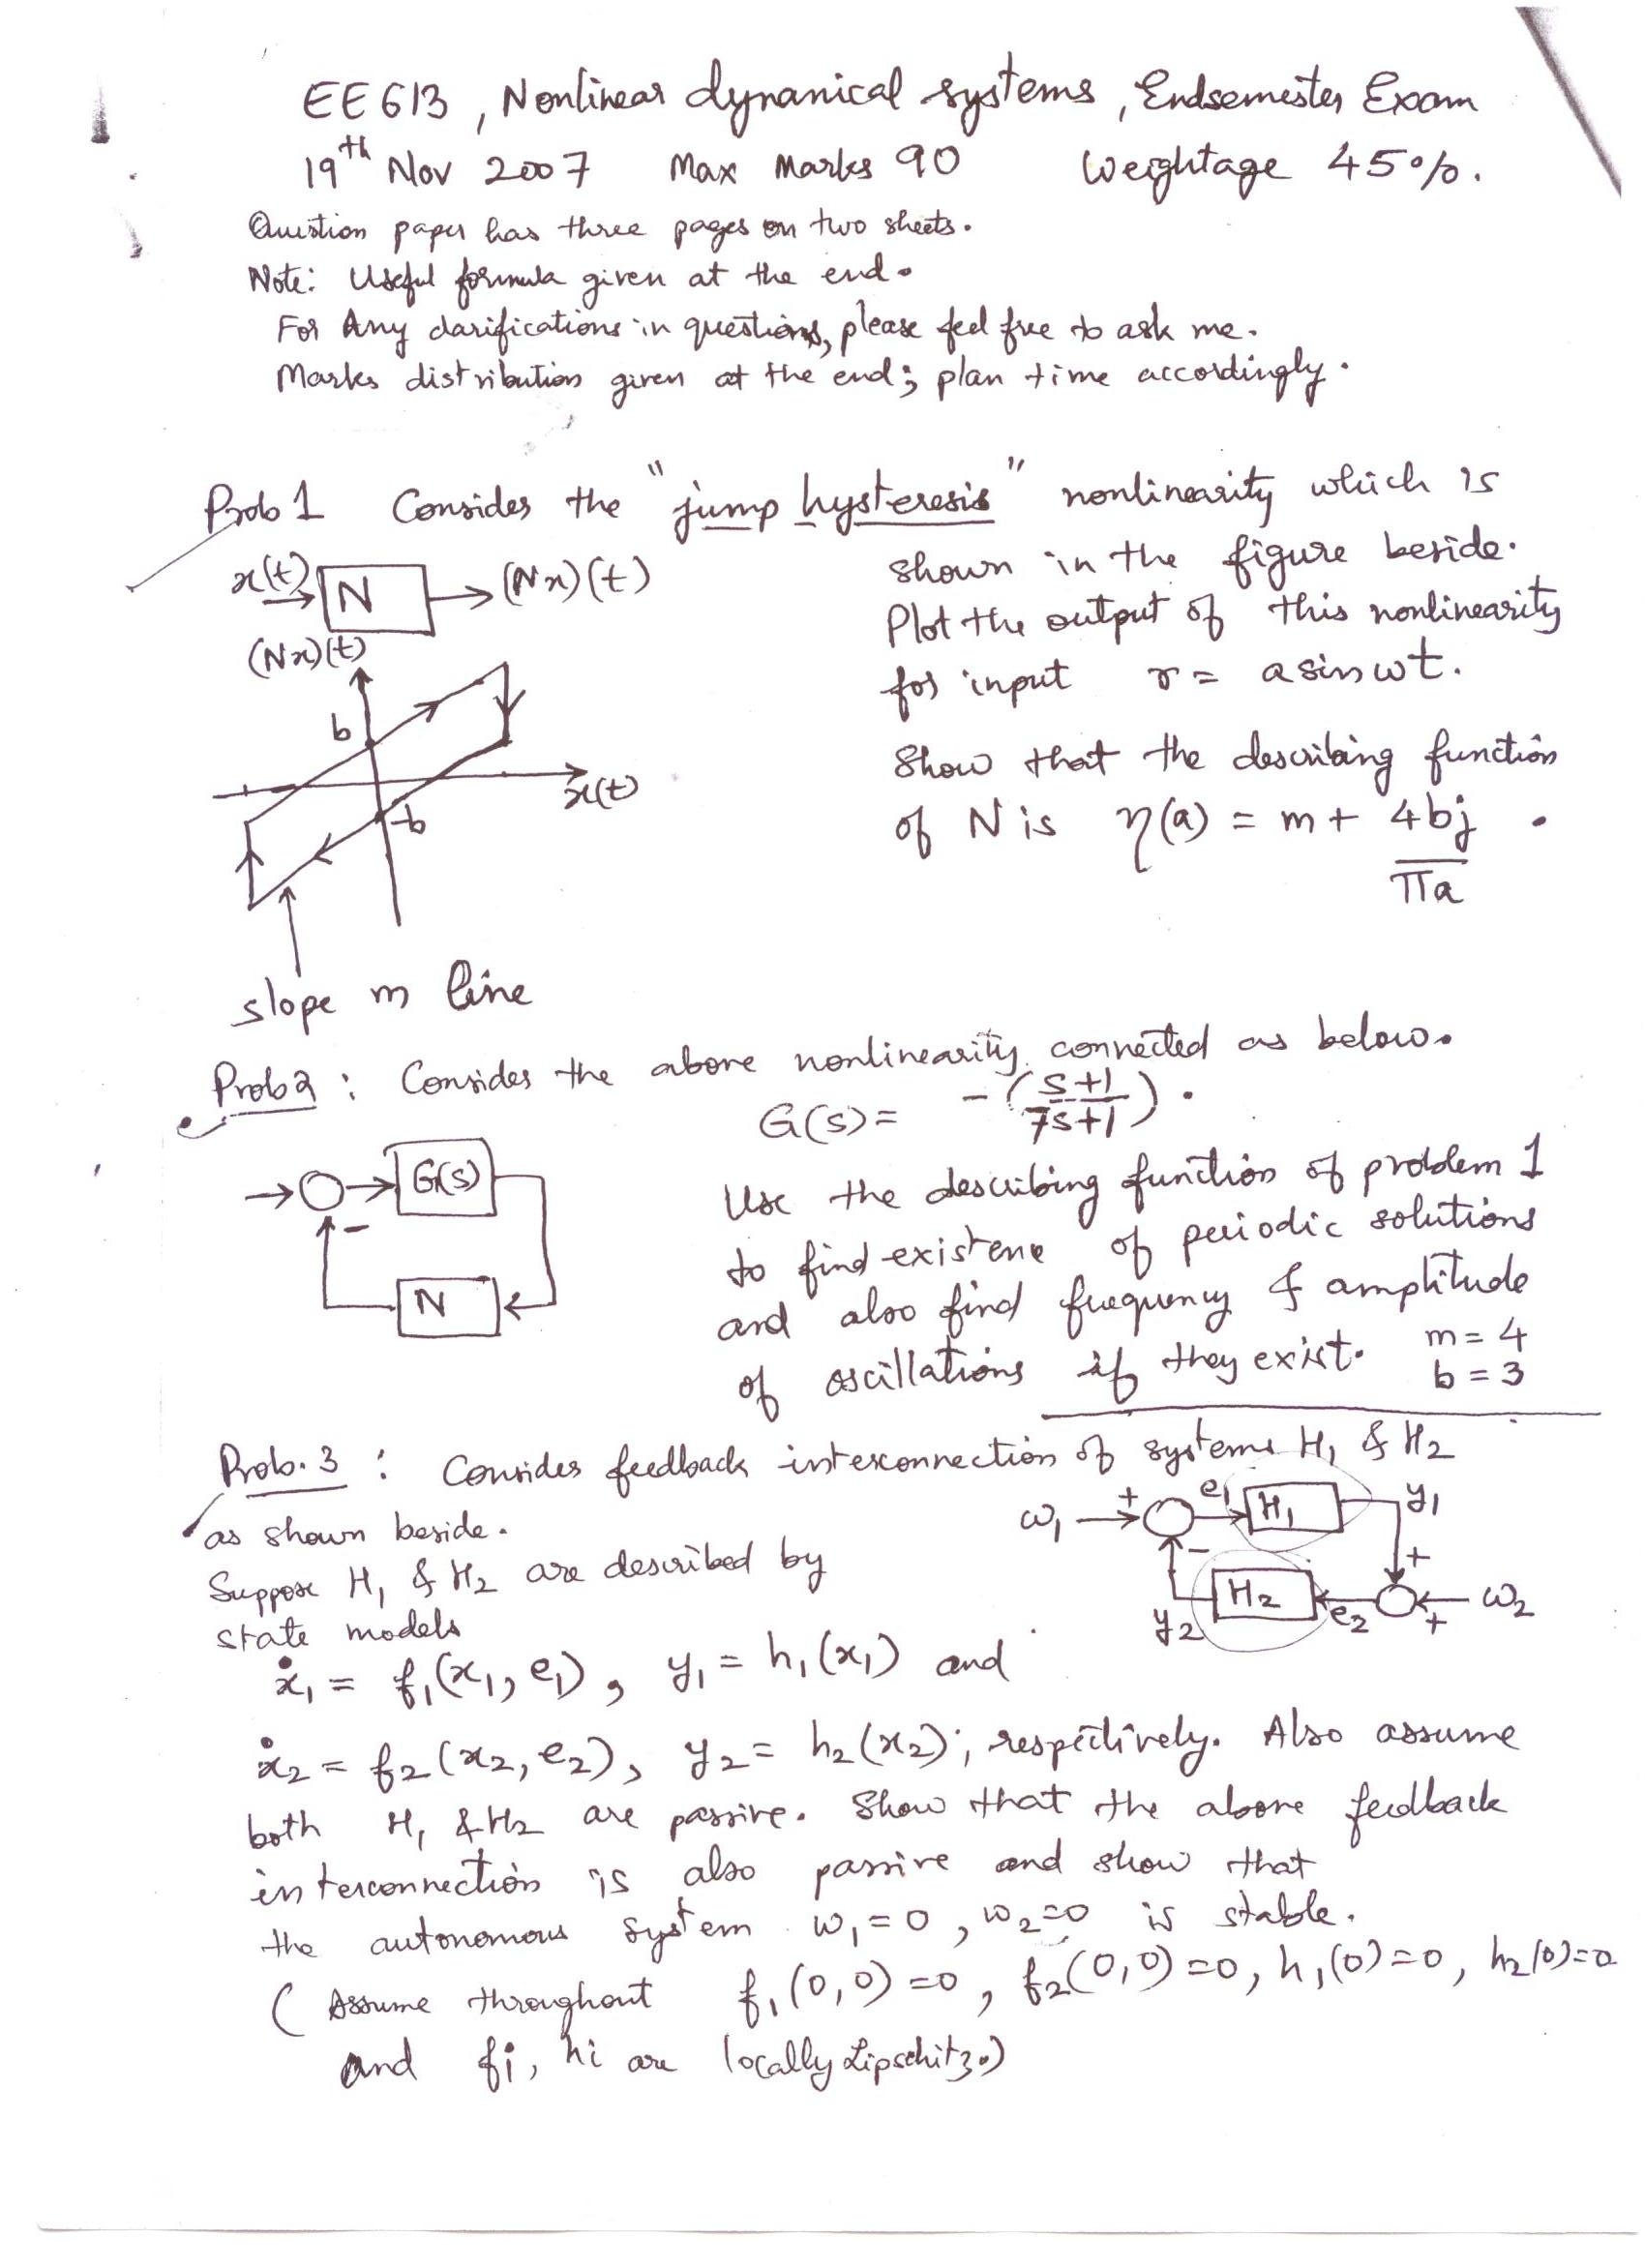 EE 613, Nonlinear dynamical systems, Endsemester Exam
19th Nov 2007 Max Marks 90 Weightage 45%.
Question paper has three pages on two sheets.
Note: Useful formula given at the end.
For Any clarifications in questions, please feel free to ask me.
Marks distribution given at the end; plan time accordingly.
Prob 1 Consider the "jump hysteresis" nonlinearity which is
shown in the figure beside.
Plot the output of this nonlinearity
for input r = a sin ωt.
Show that the describing function
of N is η(a) = m + 4bj/πa .
x(t) N (Nx)(t)
(Nx)(t)
b
x(t)
-b
slope m line
Prob 2 : Consider the above nonlinearity connected as below.
G(s) = -((s+1)/(7s+1)).
G(s)
-
N
Use the describing function of problem 1
to find existene of periodic solutions
and also find frequency & amplitude
of oscillations if they exist. m = 4
b = 3
Prob. 3 : Consider feedback interconnection of systems H1 & H2
as shown beside.
ω1 + e1 H1 y1
- +
y2 H2 e2 + ω2
Suppose H1 & H2 are described by
state models
ẋ1 = f1(x1, e1), y1 = h1(x1) and
ẋ2 = f2(x2, e2), y2 = h2(x2); respectively. Also assume
both H1 & H2 are passive. Show that the above feedback
interconnection is also passive and show that
the autonomous system w1 = 0, w2 = 0 is stable.
( Assume throughout f1(0,0) = 0, f2(0,0) = 0, h1(0) = 0, h2(0) = 0
and fi, hi are locally Lipschitz.)